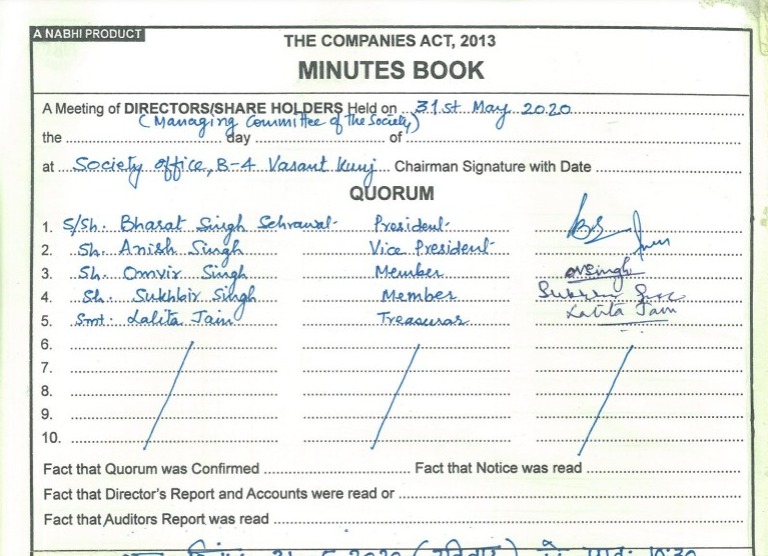 A NABHI PRODUCT
THE COMPANIES ACT, 2013
MINUTES BOOK
A Meeting of DIRECTORS/SHARE HOLDERS Held on 31st May 2020
(Managing Committee of the Society)
the day of
at Society office, B-4 Vasant Kunj Chairman Signature with Date
QUORUM
1. S/Sh. Bharat Singh Sehrawat President
2. Sh. Anish Singh Vice President
3. Sh. Omvir Singh Member
4. Sh. Sukhbir Singh Member
5. Smt. Lalita Jain Treasurar Lalita Jain
6.
7.
8.
9.
10.
Fact that Quorum was Confirmed Fact that Notice was read
Fact that Director's Report and Accounts were read or
Fact that Auditors Report was read